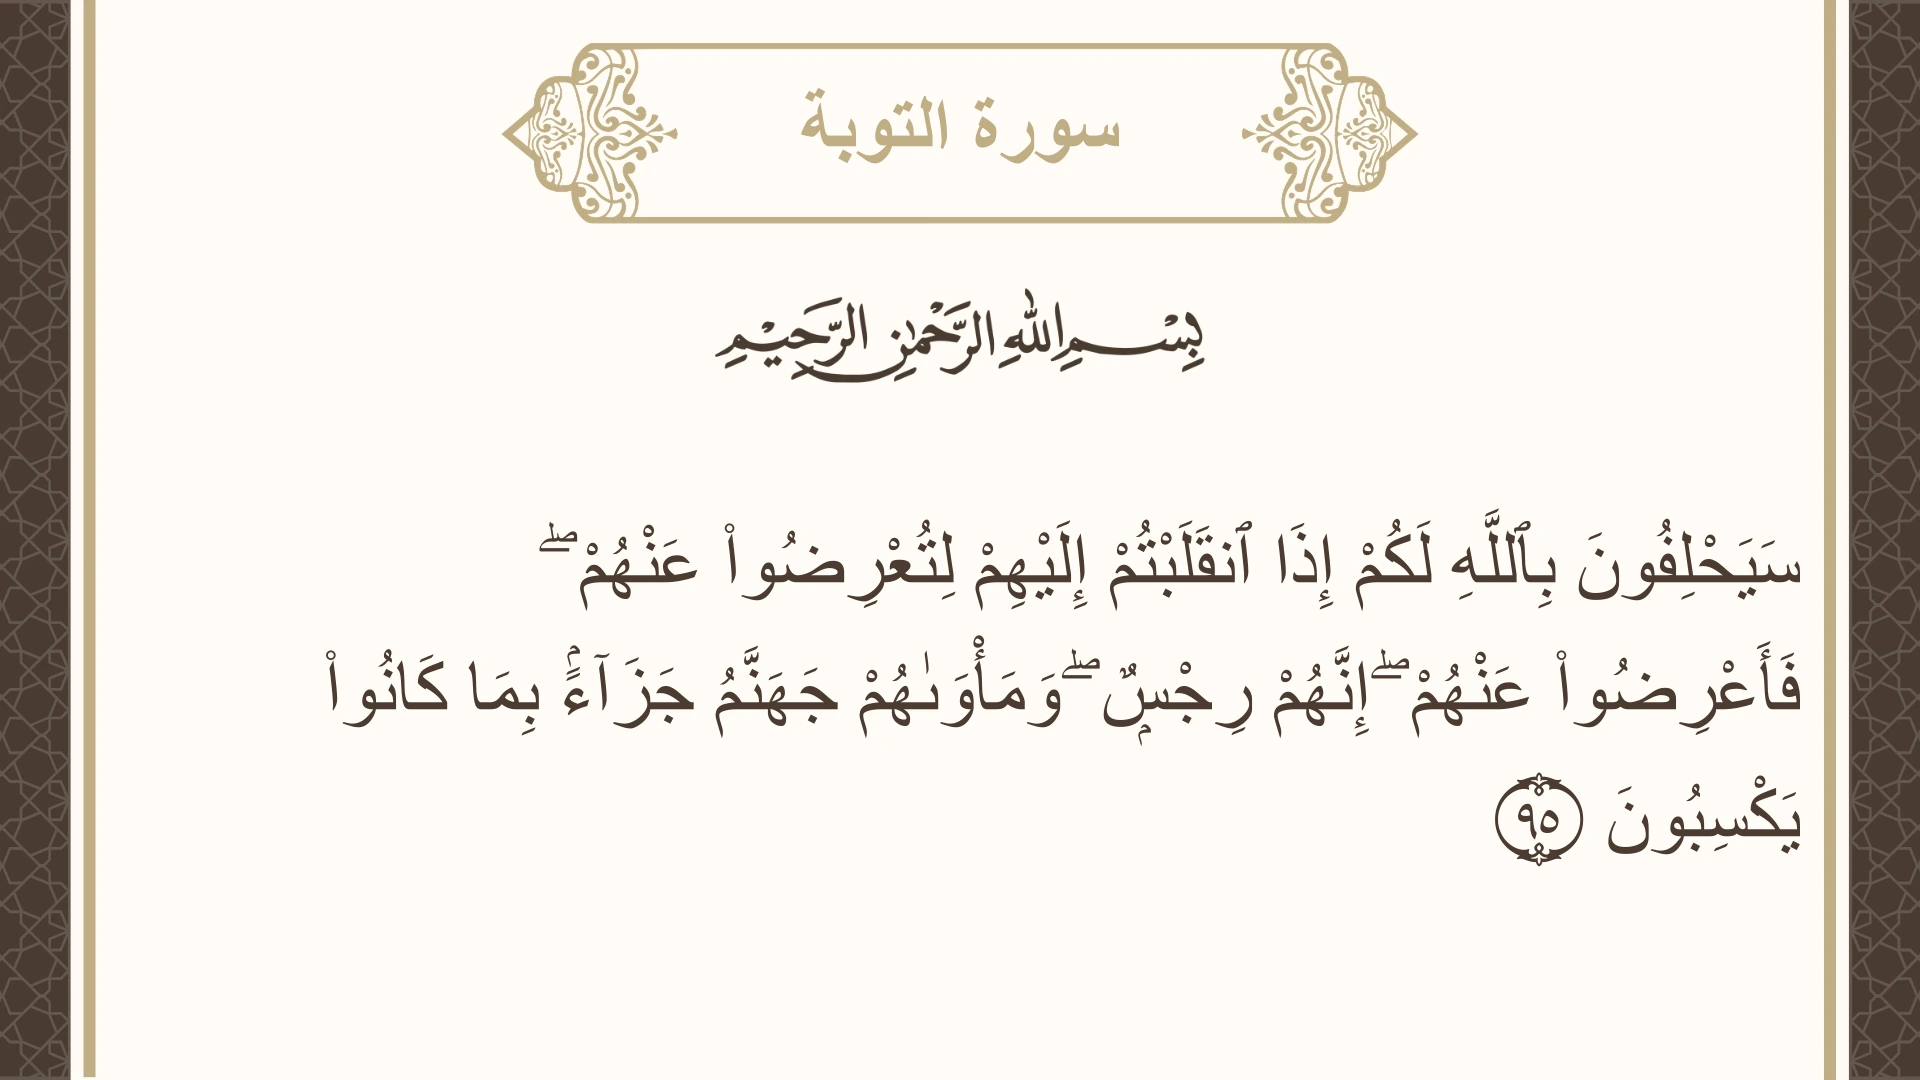 سورة التوبة
بِسْمِ اللهِ الرَّحْمٰنِ الرَّحِيْمِ
سَيَحْلِفُونَ بِٱللَّهِ لَكُمْ إِذَا ٱنقَلَبْتُمْ إِلَيْهِمْ لِتُعْرِضُوا۟ عَنْهُمْ ۖ
فَأَعْرِضُوا۟ عَنْهُمْ ۖ إِنَّهُمْ رِجْسٌۭ ۖ وَمَأْوَىٰهُمْ جَهَنَّمُ جَزَآءًۢ بِمَا كَانُوا۟
يَكْسِبُونَ ٩٥